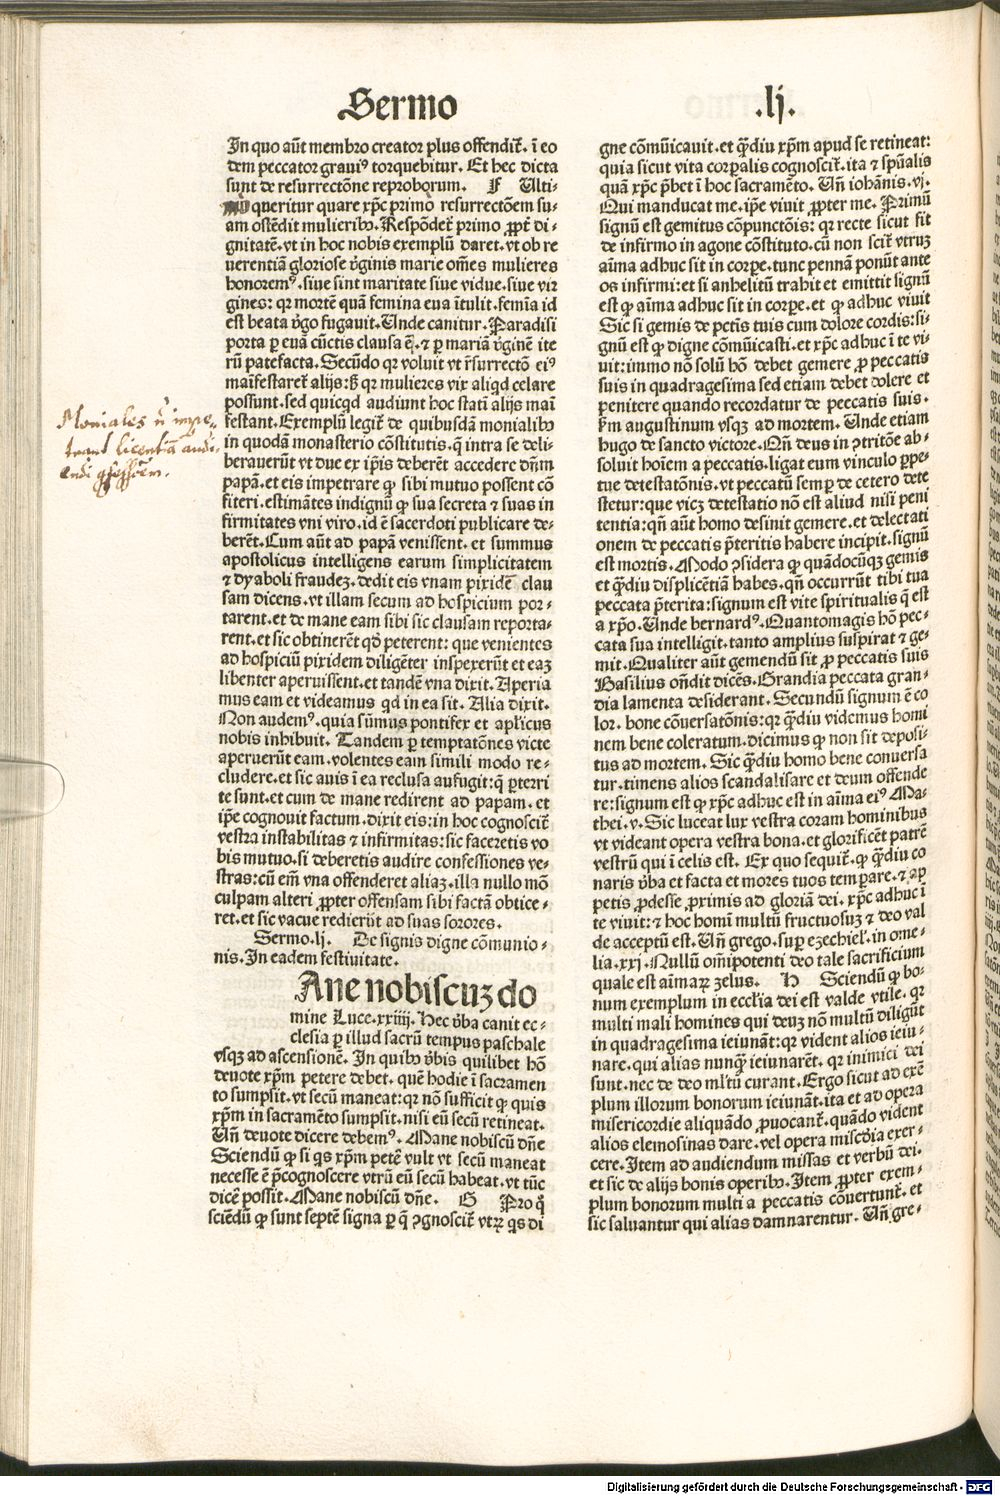 Sermo .lj.
In quo aūt membro creator plus offendit̄. ī eo
dem peccator graviꝰ torquebitur. Et hec dicta
sunt de resurrectōne reproborum. F Ulti-
queritur quare xp̄c primo resurrectōem su-
am ostēdit mulieribꝫ. Respōdet̄ primo ꝓpt̄ di-
gnitatē. vt in hoc nobis exemplū daret. vt ob re
uerentiā gloriose v̄ginis marie om̄es mulieres
honoremꝰ. siue sint maritate siue vidue. siue vir
gines: qꝛ mortē quā femina eua ītulit. femīa id
est beata v̄go fugauit. Unde canitur. Paradisi
porta ꝑ euā cūctis clausa ē. ⁊ ꝑ mariā v̄ginē ite
rū patefacta. Secūdo qꝛ voluit vt r̄surrectō eiꝰ
maīfestaret̄ alijs: s̄ qꝛ mulieres vix aliqd celare
possunt. sed quicqd audiunt hoc statī alijs maī
festant. Exemplū legit̄ de quibusdā monialibꝫ
in quodā monasterio cōstitutis. q̄ intra se deli-
berauerūt vt due ex ip̄is deberēt accedere dn̄m
papā. et eis impetrare ꝙ sibi mutuo possent cō
fiteri. estimātes indignū ꝙ sua secreta ⁊ suas in
firmitates vni viro. id ē sacerdoti publicare de-
berēt. Cum aūt ad papā venissent. et summus
apostolicus intelligens earum simplicitatem
⁊ dyaboli fraudeꝫ. dedit eis vnam pixidē clau
sam dicens. vt illam secum ad hospicium por-
tarent. et de mane eam sibi sic clausam reporta-
rent. et sic obtinerēt qd̄ peterent: que venientes
ad hospiciū pixidem diligēter inspexerūt et eaꝫ
libenter aperuissent. et tandē vna dixit. Aperia
mus eam et videamus qd in ea sit. Alia dixit.
Non audemꝰ. quia sūmus pontifex et apl̄icus
nobis inhibuit. Tandem ꝑ temptatōnes victe
aperuerūt eam. volentes eam simili modo re-
cludere. et sic auis ī ea reclusa aufugit: q̄ ꝑterri
te sunt. et cum de mane redirent ad papam. et
ip̄e cognouit factum. dixit eis: in hoc cognoscit̄
vestra instabilitas ⁊ infirmitas: sic faceretis vo
bis mutuo. si deberetis audire confessiones ve-
stras: cū em̄ vna offenderet aliaꝫ. illa nullo mō
culpam alteri ꝓpter offensam sibi factā obtice-
ret. et sic vacue redierūt ad suas sorores.
Sermo. lj. De signis digne cōmunio-
nis. In eadem festiuitate.
Ane nobiscuꝫ do
mine Luce. xxiiij. Hec v̄ba canit ec-
clesia ꝑ illud sacrū tempus paschale
vsqꝫ ad ascensionē. In quibꝫ v̄bis quilibet hō
deuote xp̄m petere debet. quē hodie ī sacramen
to sumpsit. vt secū maneat: qꝛ nō sufficit ꝙ quis
xp̄m in sacramēto sumpsit. nisi eū secū retineat.
Un̄ deuote dicere debemꝰ. Mane nobiscū dn̄e
Sciendū ꝙ si qs xp̄m petē vult vt secū maneat
necesse ē p̄cognoscere vtrū eū secū habeat. vt tūc
dicē possit. Mane nobiscū dn̄e. G Pro q̊
sciēdū ꝙ sunt septē signa ꝑ q̄ ꝯgnoscit̄ vtꝝ qs di
gne cōmūicauit. et q̄diu xp̄m apud se retineat:
quia sicut vita corꝑalis cognoscit̄. ita ⁊ spūalis
quā xp̄c p̄bet ī hoc sacramēto. Un̄ iohānis. vj.
Qui manducat me. ip̄e viuit ꝓpter me. Primū
signū est gemitus cōpunctōis: qꝛ recte sicut fit
de infirmo in agone cōstituto. cū non scit̄ vtruꝫ
aīma adhuc sit in corꝑe. tunc pennā ponūt ante
os infirmi: et si anhelitū trahit et emittit signū
est ꝙ aīma adhuc sit in corꝑe. et ꝙ adhuc viuit
Sic si gemis de pctīs tuis cum dolore cordis: si-
gnū est ꝙ digne cōmūicasti. et xp̄c adhuc ī te vi
uit: immo nō solū hō debet gemere ꝓ peccatis
suis in quadragesima sed etiam debet dolere et
penitere quando recordatur de peccatis suis.
km̄ augustinum vsqꝫ ad mortem. Unde etiam
hugo de sancto victore. Qn̄ deus in ꝯtritōe ab-
soluit hoīem a peccatis. ligat eum vinculo ꝑpe-
tue detestatōnis. vt peccatū semꝑ de cetero dete
stetur: que vicꝫ detestatio nō est aliud nisi peni
tentia: qn̄ aūt homo desinit gemere. et delectati
onem de peccatis p̄teritis habere incipit. signū
est mortis. Modo ꝯsidera ꝙ quādocūqꝫ gemis
et q̄diu displicētiā habes. qn̄ occurrūt tibi tua
peccata p̄terita: signum est vite spiritualis q̄ est
a xp̄o. Unde bernardꝰ. Quantomagis hō pec-
cata sua intelligit. tanto amplius suspirat ⁊ ge-
mit. Qualiter aūt gemendū sit ꝓ peccatis suis
Basilius on̄dit dicēs. Grandia peccata gran-
dia lamenta desiderant. Secundū signum ē co
lor. bone cōuersatōnis: qꝛ q̄diu videmus homi
nem bene coleratum. dicimus ꝙ non sit deposi-
tus ad mortem. Sic q̄diu homo bene conuersa
tur. timens alios scandalisare et deum offende
re: signum est ꝙ xp̄c adhuc est in aīma eiꝰ Ma-
thei. v. Sic luceat lux vestra coram hominibus
vt videant opera vestra bona. et glorificēt patrē
vestrū qui ī celis est. Ex quo sequit̄. ꝙ q̄diu co
naris v̄ba et facta et mores tuos temꝑare. ⁊ ap
petis ꝓdesse ꝓximis ad gloriā dei. xp̄c adhuc ī
te viuit: ⁊ hoc homī multū fructuosuꝫ ⁊ deo val
de acceptū est. Un̄ grego. suꝑ ezechiel̄. in ome-
lia. xxj. Nullū om̄ipotenti deo tale sacrificium
quale est aīmaꝝ zelus. H Sciendū ꝙ bo-
num exemplum in eccl̄ia dei est valde vtile. qꝛ
multi mali homines qui deuꝫ nō multū diligūt
in quadragesima ieiunāt: qꝛ vident alios ieiu-
nare. qui alias nunq̄ ieiunarēt. qꝛ inimici dei
sunt. nec de deo ml̄tū curant. Ergo sicut ad exē
plum illorum bonorum ieiunāt. ita et ad opera
misericordie aliquādo ꝓuocant̄. quādo vident
alios elemosinas dare. vel opera miscd̄ia exer-
cere. Item ad audiendum missas et verbū dei.
et sic de alijs bonis operibꝫ. Item ꝓpter exem-
plum bonorum multi a peccatis cōuertunt̄. et
sic saluantur qui alias damnarentur. Un̄ gre-
Moniales ñ impe-
trant licentiā audi-
endi
Digitalisierung gefördert durch die Deutsche Forschungsgemeinschaft - DFG